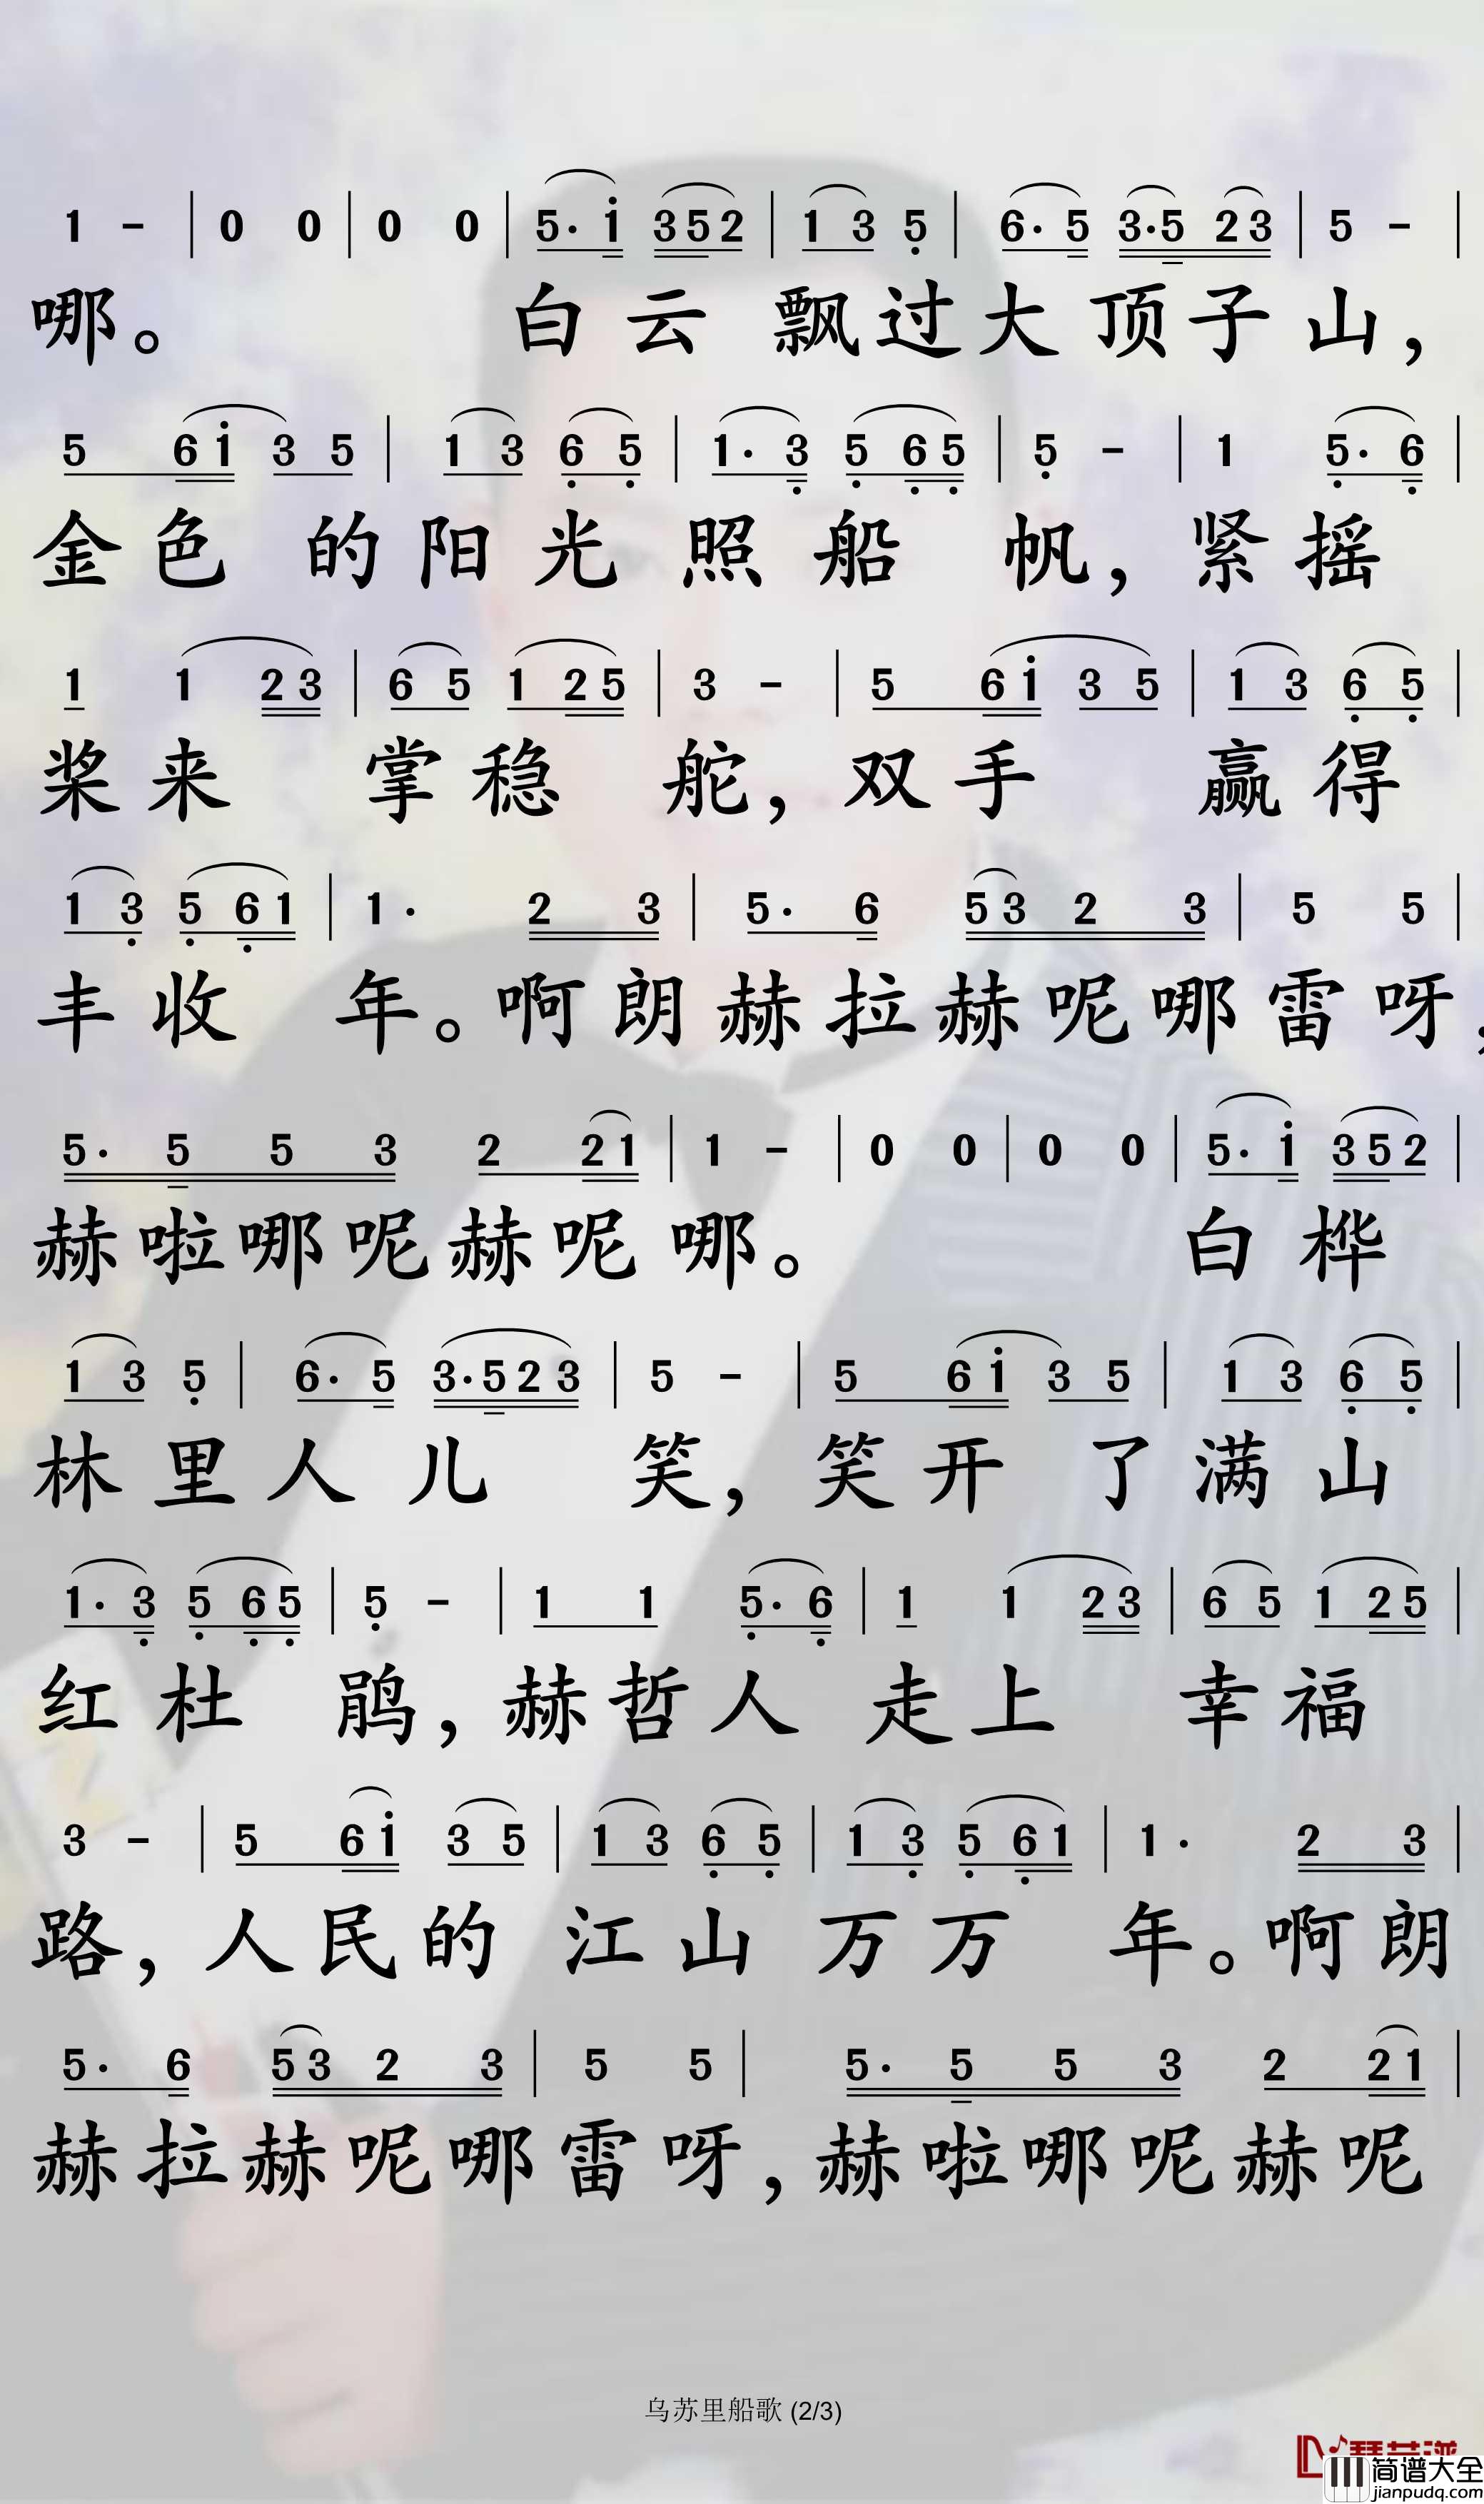 1 - | 0 0 | 0 0 | 5· i 3 5 2 | 1 3 5 | 6· 5 3·5 2 3 | 5 - |
哪。 白云 飘过大顶子山，
5 6 i 3 5 | 1 3 6 5 | 1· 3 5 6 5 | 5 - | 1 5· 6 |
金色 的阳光 照船 帆，紧摇
1 1 2 3 | 6 5 1 2 5 | 3 - | 5 6 i 3 5 | 1 3 6 5 |
桨来 掌稳 舵，双手 赢得
1 3 5 6 1 | 1· 2 3 | 5· 6 5 3 2 3 | 5 5 |
丰收 年。啊朗赫拉赫呢哪雷呀，
5· 5 5 3 2 2 1 | 1 - | 0 0 | 0 0 | 5· i 3 5 2 |
赫啦哪呢赫呢 哪。 白桦
1 3 5 | 6· 5 3·5 2 3 | 5 - | 5 6 i 3 5 | 1 3 6 5 |
林里人儿 笑，笑开 了满山
1· 3 5 6 5 | 5 - | 1 1 5· 6 | 1 1 2 3 | 6 5 1 2 5 |
红杜 鹃，赫哲人 走上 幸福
3 - | 5 6 i 3 5 | 1 3 6 5 | 1 3 5 6 1 | 1· 2 3 |
路，人民的 江山 万万 年。啊朗
5· 6 5 3 2 3 | 5 5 | 5· 5 5 3 2 2 1 |
赫拉赫呢哪雷呀，赫啦哪呢赫呢
乌苏里船歌 (2/3)
简谱大全
jianpudq.com